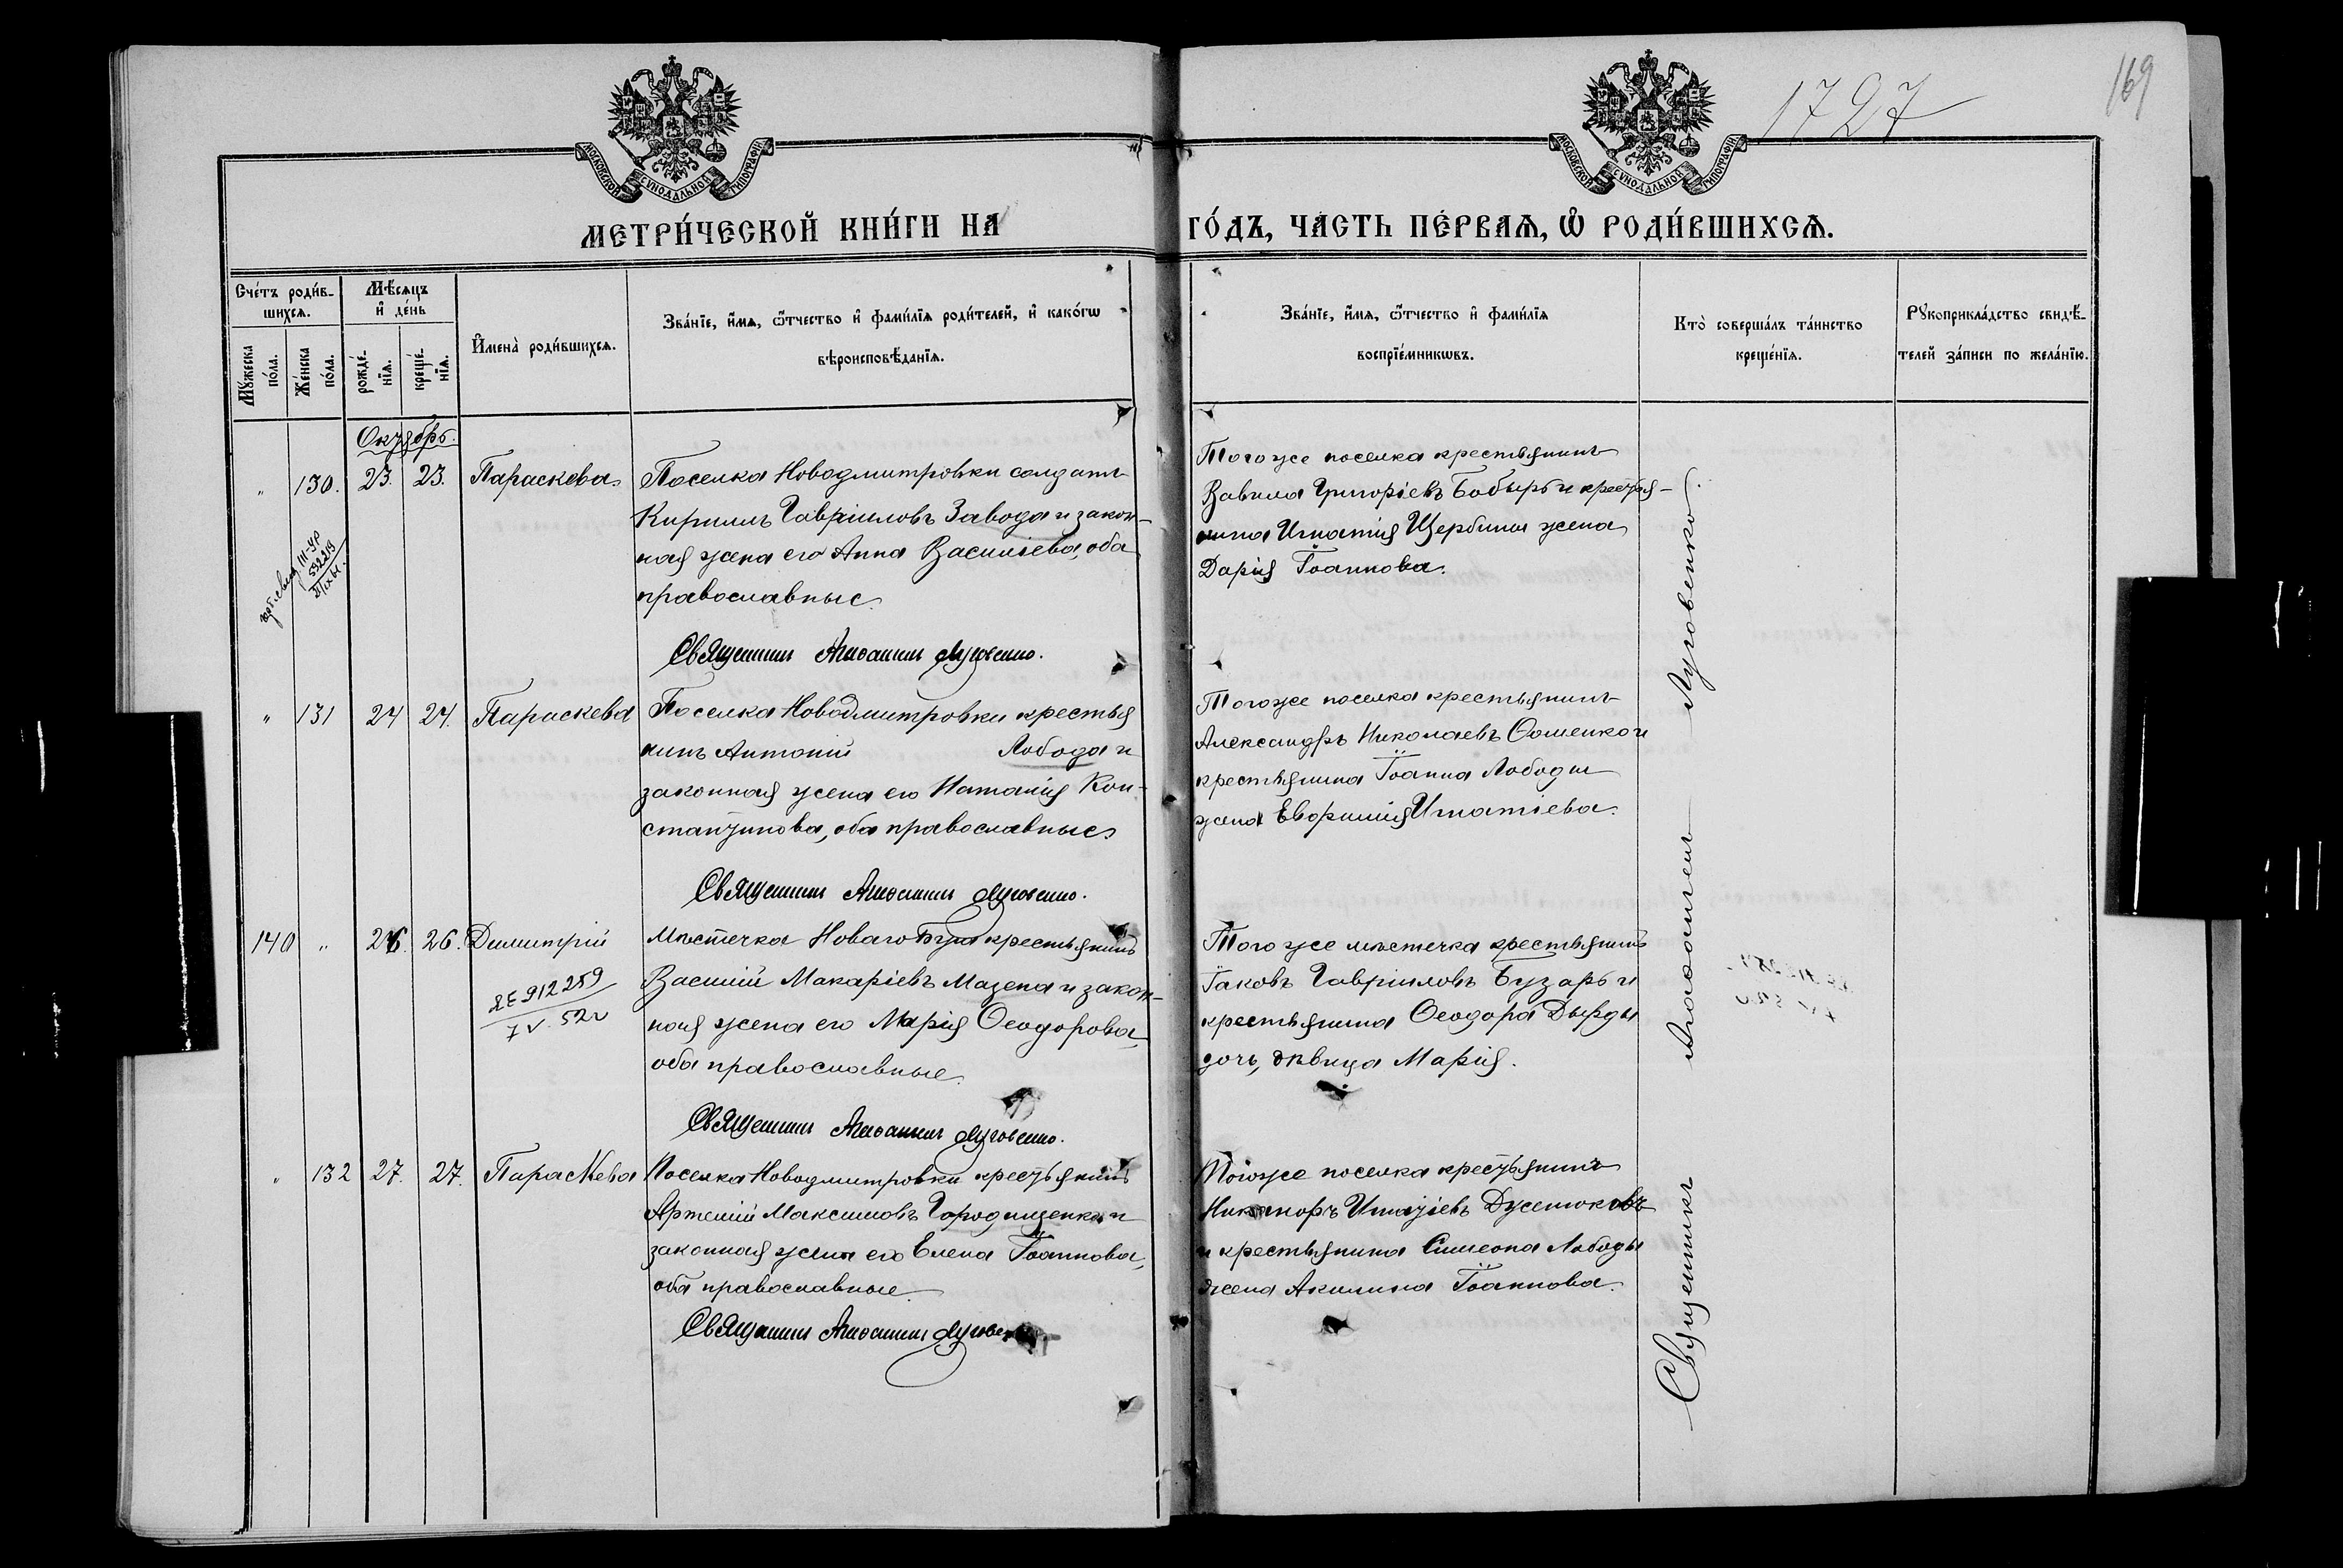 1727
169
МОСКОВСКОЙ СѴНОДАЛЬНОЙ ТИПОГРАФІИ
МОСКОВСКОЙ СѴНОДАЛЬНОЙ ТИПОГРАФІИ
МЕТРИ́ЧЕСКОЙ КНИ́ГИ НА ГО́ДЪ, ЧА́СТЬ ПЕ́РВАѦ, Ѽ РОДИ́ВШИХСѦ.
Сче́тъ роди́в-
шихсѧ.
Мꙋ́жеска
по́ла.
Же́нска
по́ла.
Мѣ́сѧцъ
и҆ де́нь
рожде́-
нїѧ.
креще́-
нїѧ.
И҆мена̀ роди́вшихсѧ.
Зва́нїе, и҆́мѧ, ѻ҆́тчество и҆ фами́лїѧ роди́телей, и҆ како́гѡ
вѣроисповѣ́данїѧ.
Зва́нїе, и҆́мѧ, ѻ҆́тчество и҆ фами́лїѧ
воспрїе́мникѡвъ.
Кто̀ соверша́лъ та́инство
креще́нїѧ.
Рꙋкоприкла́дство свидѣ́-
телей за́писи по жела́нїю.
Октябрь.
" 130. 23. 23. Параскева
Поселка Новодмитровки солдатъ
Кириллъ Гавріиловъ Завода и закон-
ная жена его Анна Василіева, оба
православные
Священникъ Аѳанасій Луговенко.
Того же поселка крестьянинъ
Вавила Григоріевъ Бобырь и крестья-
нина Игнатія Щербины жена
Дарія Іоаннова.
III-УР
532219
" 131 24 24. Параскева
Поселка Новодмитровки крестья
нинъ Антоній Лобода и
законная жена его Наталія Кон-
стантинова, оба православные
Священникъ Аѳанасій Луговенко.
Того же поселка крестьянинъ
Александръ Николаевъ Ѳоменко и
крестьянина Іоанна Лободы
жена Евфимія Игнатіева.
140 " 26. 26. Димитрій
2Е 912259
7 V. 52
Мѣстечка Новаго Буга крестьянинъ
Василій Макаріевъ Мазепа и закон-
ная жена его Марія Ѳеодорова,
оба православные.
Священникъ Аѳанасій Луговенко.
Того же мѣстечка крестьянинъ
Іаковъ Гавріиловъ Бузарь и
крестьянина Ѳеодора Дырды
дочь, дѣвица Марія.
" 132 27. 27. Параскева
Поселка Новодмитровки крестьянинъ
Артемій Максимовъ Городищенко и
законная жена его Елена Іоаннова,
оба православные.
Священникъ Аѳанасій Луговенко
Того же поселка крестьянинъ
Никаноръ Игнатіевъ
и крестьянина Симеона Лободы
жена Акилина Іоаннова.
Священникъ Аѳанасій Луговенко.